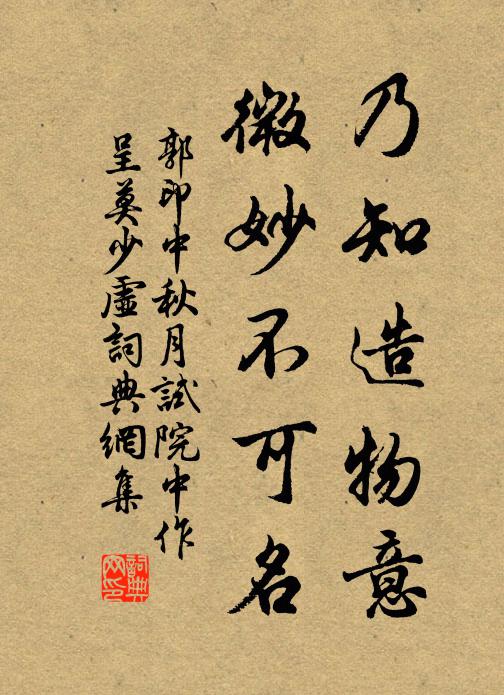 乃知造物意
微妙不可名
郭印中秋月試院中作
呈莫少虛詞典網集
詞典网印